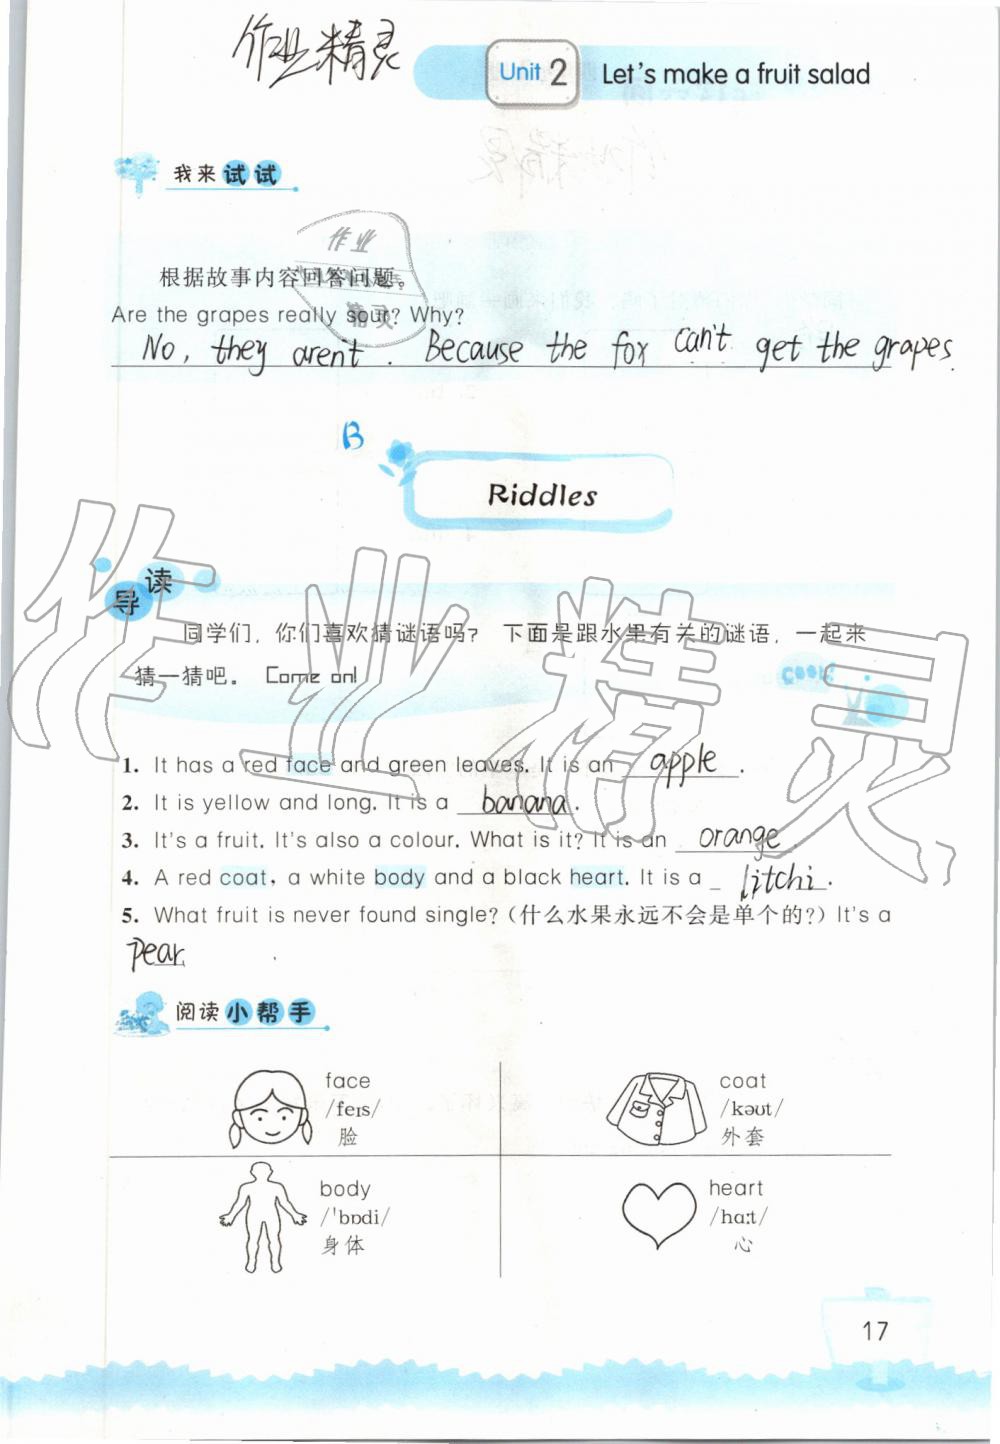 作业精灵
Unit 2 Let's make a fruit salad
我来试试
作业
精灵
根据故事内容回答问题。
Are the grapes really sour? Why?
No, they aren't. Because the fox can't get the grapes.
B
Riddles
导读
同学们，你们喜欢猜谜语吗？ 下面是跟水果有关的谜语，一起来
猜一猜吧。 Come on!
作业精灵
1. It has a red face and green leaves. It is an apple.
2. It is yellow and long. It is a banana.
3. It's a fruit. It's also a colour. What is it? It is an orange.
4. A red coat, a white body and a black heart. It is a litchi.
5. What fruit is never found single?（什么水果永远不会是单个的？）It's a
pear.
阅读小帮手
face
/feɪs/
脸
coat
/kəʊt/
外套
body
/'bɒdi/
身体
heart
/hɑːt/
心
17